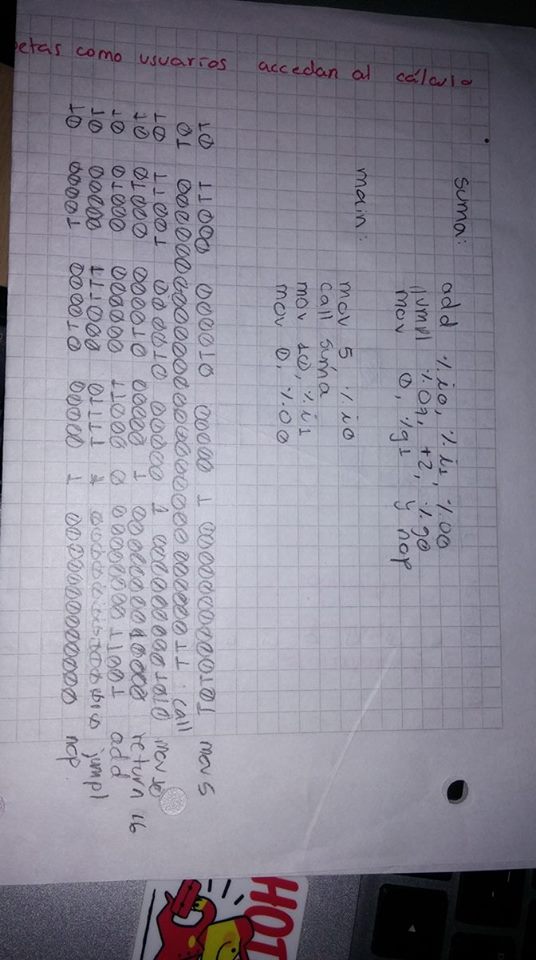 etas como usuarios accedan al cálculo
suma:
add %i0, %i1, %o0
jumpl %o7, +2, %g0
mov 0, %g1 y nop
main:
mov 5 %i0
call suma
mov 10, %i1
mov 0, %o0
10 11000 000010 00000 1 0000000000101 mov 5
01 000000000000000000000000000011 call
10 11001 000010 00000 1 0000000001010 mov 10
10 01000 000010 00000 1 0000000010000 return 16
10 01000 000000 11000 0 0000000011001 add
10 00000 111000 11111 jumpl
10 00001 000010 00000 1 0000000000000 nop
HOT